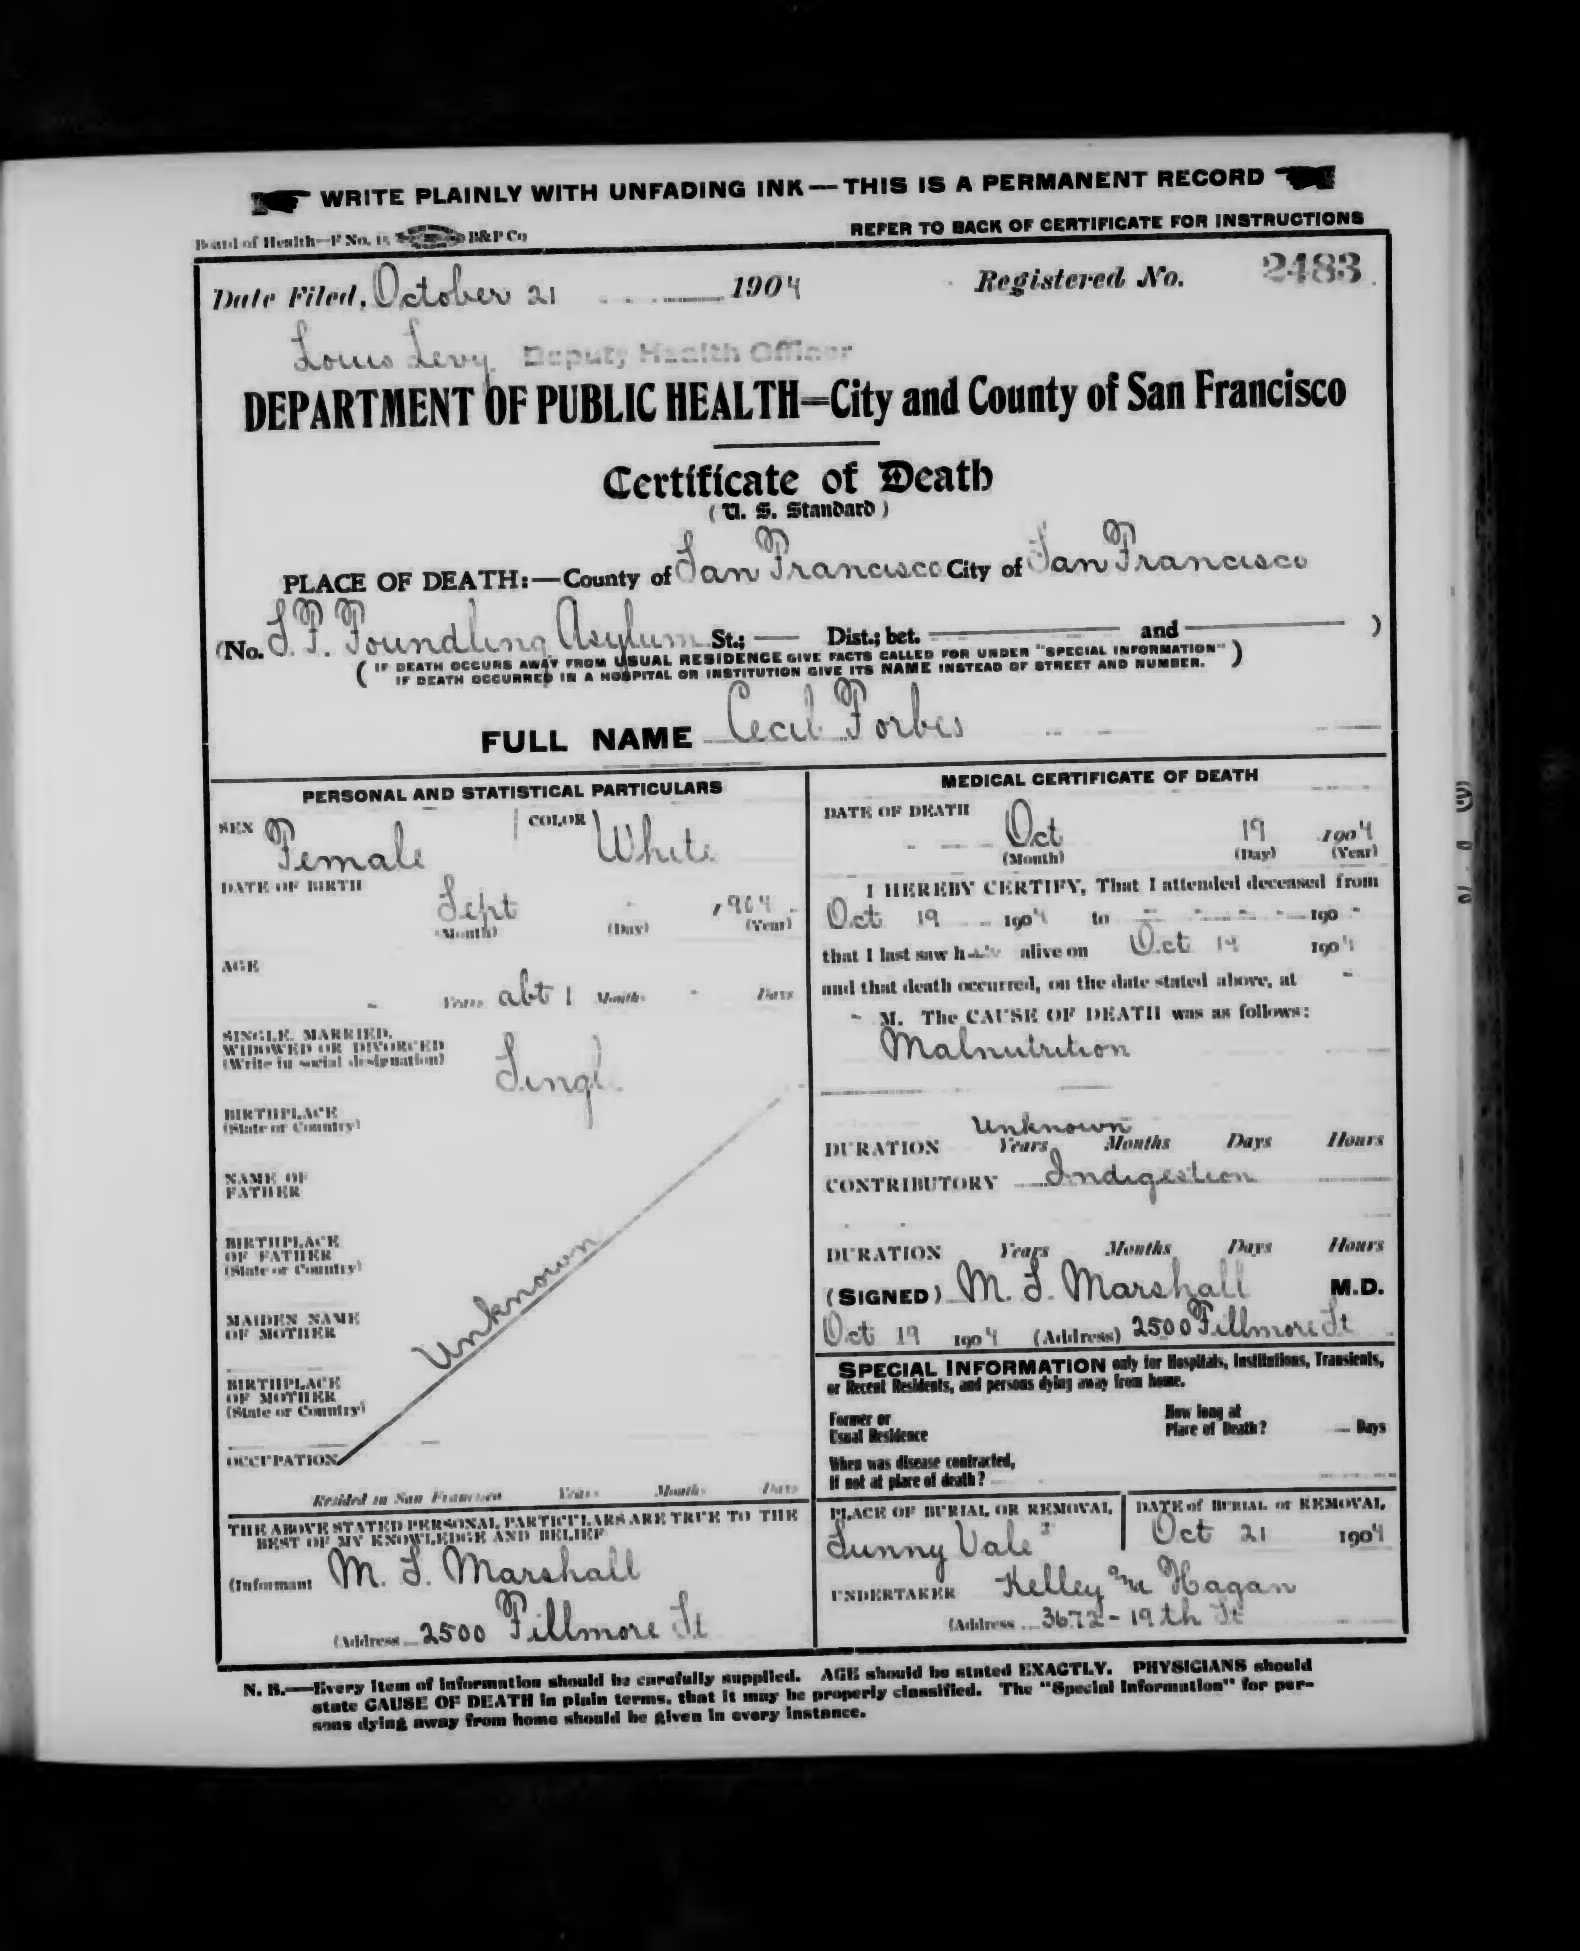 WRITE PLAINLY WITH UNFADING INK — THIS IS A PERMANENT RECORD
Board of Health—F No. 15 B&P Co
REFER TO BACK OF CERTIFICATE FOR INSTRUCTIONS
Date Filed, October 21 1904 Registered No. 2483
Louis Levy Deputy Health Officer
DEPARTMENT OF PUBLIC HEALTH—City and County of San Francisco
Certificate of Death
(U. S. Standard)
PLACE OF DEATH:—County of San Francisco City of San Francisco
(No. S.F. Foundling Asylum St.; — Dist.; bet. — and — )
( IF DEATH OCCURS AWAY FROM USUAL RESIDENCE GIVE FACTS CALLED FOR UNDER "SPECIAL INFORMATION" )
IF DEATH OCCURRED IN A HOSPITAL OR INSTITUTION GIVE ITS NAME INSTEAD OF STREET AND NUMBER.
FULL NAME Cecil Forbes
PERSONAL AND STATISTICAL PARTICULARS
SEX Female COLOR White
DATE OF BIRTH
Sept - 1904
(Month) (Day) (Year)
AGE
- Years abt 1 Months - Days
SINGLE, MARRIED,
WIDOWED OR DIVORCED
(Write in social designation)
Single
BIRTHPLACE
(State or Country)
NAME OF
FATHER
BIRTHPLACE
OF FATHER
(State or Country)
Unknown
MAIDEN NAME
OF MOTHER
BIRTHPLACE
OF MOTHER
(State or Country)
OCCUPATION
Resided in San Francisco Years Months Days
THE ABOVE STATED PERSONAL PARTICULARS ARE TRUE TO THE
BEST OF MY KNOWLEDGE AND BELIEF
(Informant M. S. Marshall
(Address 2500 Fillmore St
MEDICAL CERTIFICATE OF DEATH
DATE OF DEATH
Oct 19 1904
(Month) (Day) (Year)
I HEREBY CERTIFY, That I attended deceased from
Oct 19 1904 to - 190 -
that I last saw h alive on Oct 19 1904
and that death occurred, on the date stated above, at -
- M. The CAUSE OF DEATH was as follows:
Malnutrition
Unknown
DURATION Years Months Days Hours
CONTRIBUTORY Indigestion
DURATION Years Months Days Hours
(SIGNED) M. S. Marshall M.D.
Oct 19 1904 (Address) 2500 Fillmore St
SPECIAL INFORMATION only for Hospitals, Institutions, Transients,
or Recent Residents, and persons dying away from home.
Former or
Usual Residence
How long at
Place of Death? — Days
When was disease contracted,
If not at place of death?
PLACE OF BURIAL OR REMOVAL
Sunny Vale
DATE of BURIAL or REMOVAL
Oct 21 1904
UNDERTAKER Kelley Hagan
(Address 3672 - 19th St
N. B.—Every item of information should be carefully supplied. AGE should be stated EXACTLY. PHYSICIANS should
state CAUSE OF DEATH in plain terms, that it may be properly classified. The "Special Information" for per-
sons dying away from home should be given in every instance.